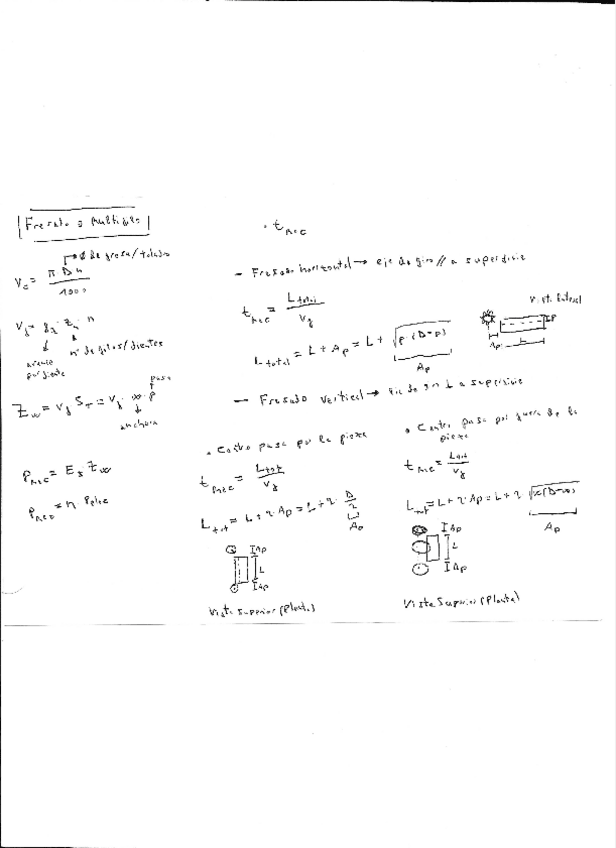 Fresado o multifilo
Vc = π·D·n / 1000
→ Ø de fresa/taladro
Vf = fz·Zn·n
avance por diente
nº de filos/dientes
Zw = Vf ST = Vf · ω·p
pasada
anchura
Pmec = Es Zw
Pmec = η Pelec
• tmec
- Fresado horizontal → eje de giro // a superficie
tmec = Ltotal / Vf
Ltotal = L + Ap = L + √p·(D-p)
Ap
Vista lateral
Ap
L
p
- Fresado vertical → eje de giro ⊥ a superficie
• Centro pasa por la pieza
tmec = Ltot / Vf
Ltot = L + 2·Ap = L + 2·D/2
Ap
Ap
L
Ap
Vista Superior (Planta)
• Centro pasa por fuera de la pieza
tmec = Ltot / Vf
Ltot = L + 2·Ap = L + 2 √ω(D-ω)
Ap
Ap
L
Ap
Vista Superior (Planta)